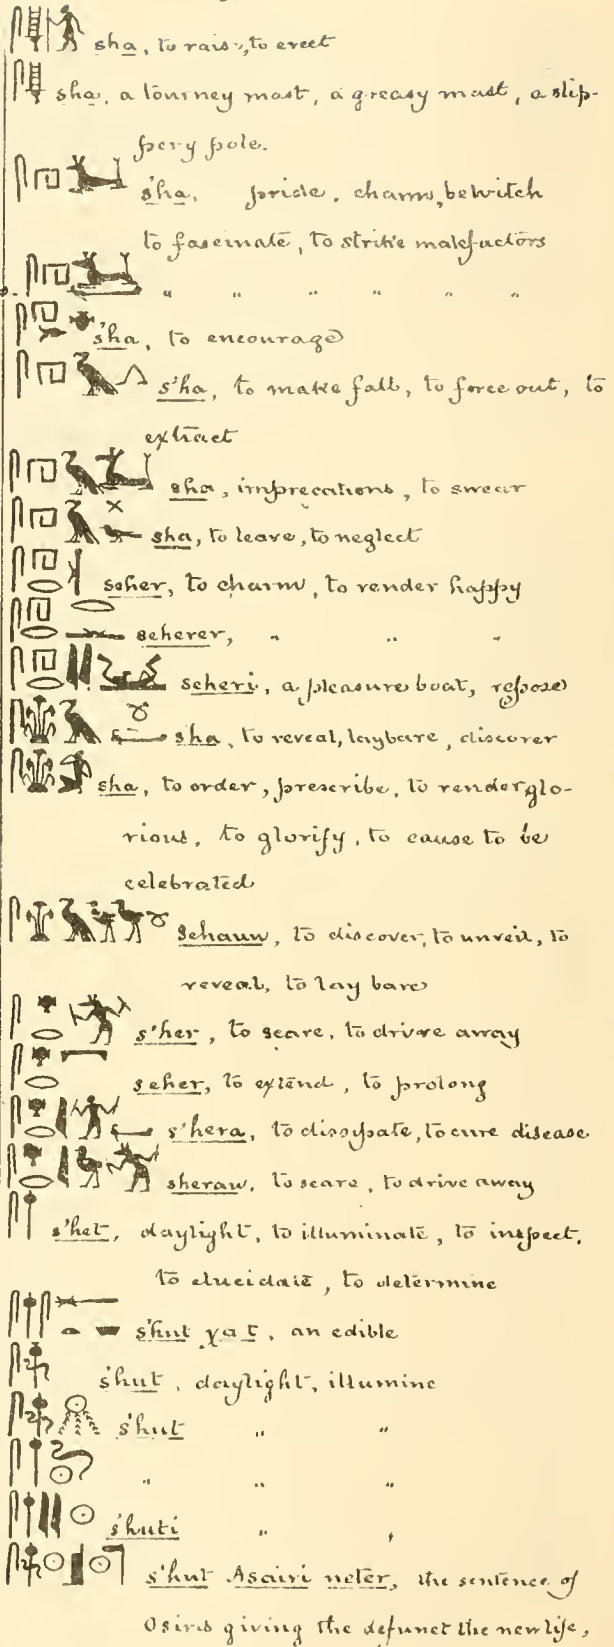 sha, to raise, to erect
sha, a tourney mast, a greasy mast, a slip-
pery pole.
s'ha, pride, charm, bewitch
to fascinate, to strike malefactors
" " " " " "
s'ha, to encourage
s'ha, to make fall, to force out, to
extract
sha, imprecations, to swear
sha, to leave, to neglect
seher, to charm, to render happy
seherer, " " "
seheri, a pleasure boat, repose
s'ha, to reveal, lay bare, discover
sha, to order, prescribe, to render glo-
rious, to glorify, to cause to be
celebrated
sehauu, to discover, to unveil, to
reveal, to lay bare
s'her, to scare, to drive away
seher, to extend, to prolong
s'hera, to dissipate, to cure disease
sherau, to scare, to drive away
s'het, daylight, to illuminate, to inspect,
to elucidate, to determine
s'hut χat, an edible
s'hut, daylight, illumine
s'hut " "
" " "
s'huti " "
s'hut Asairi neter, the sentence of
Osiris giving the defunct the new life,